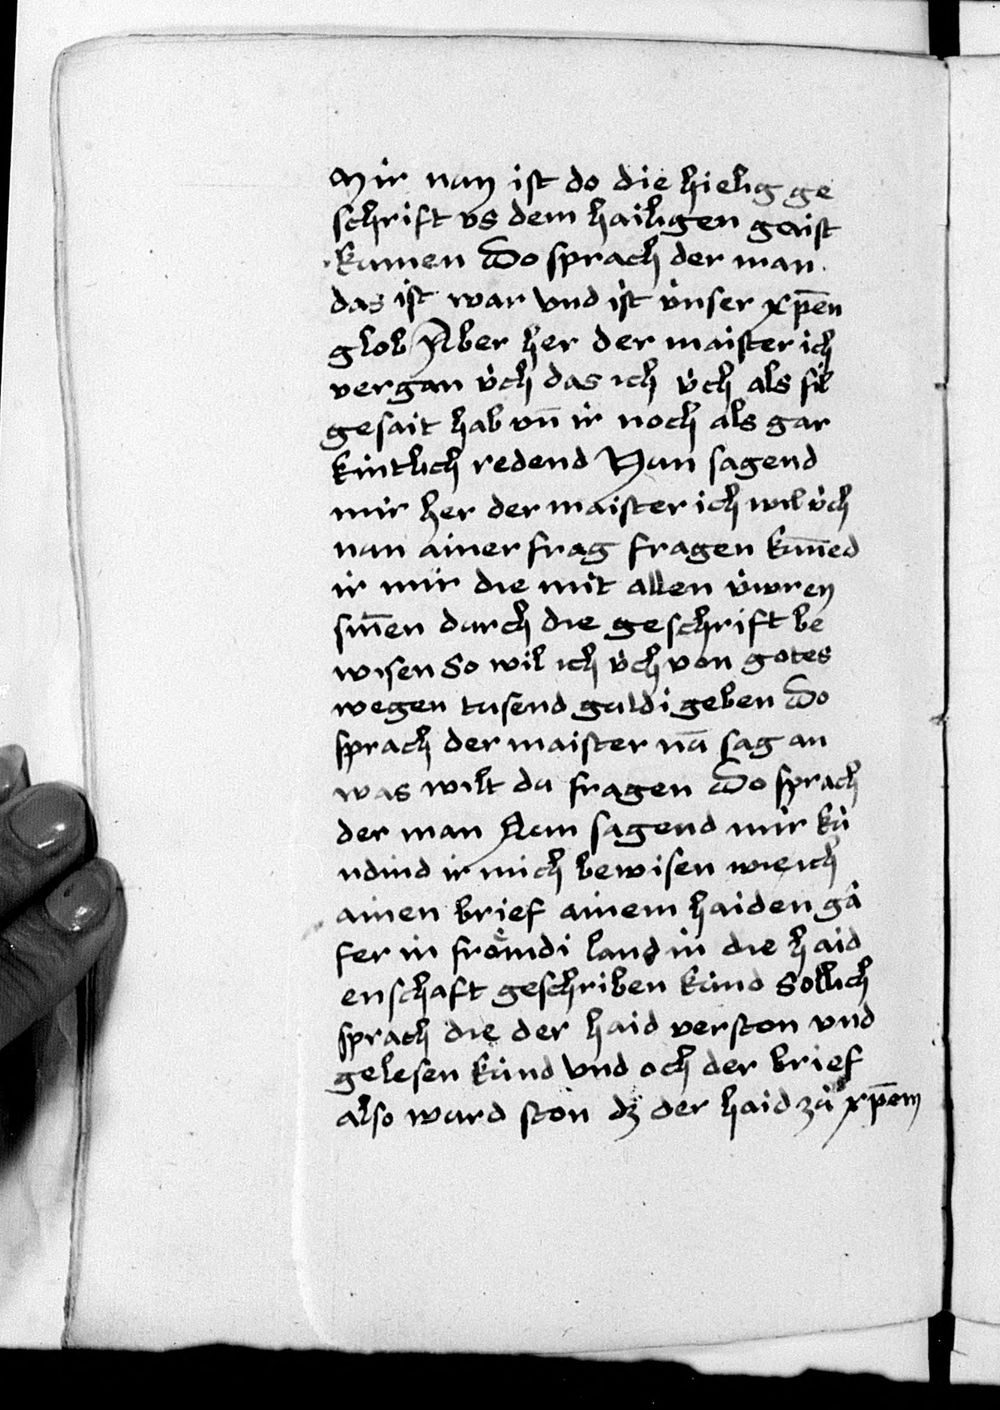 Mir nun ist do die hielig ge
schrift vs dem hailigen gaist
kumen Do sprach der man
das ist war vnd ist vnser xp̄en
glob Aber her der maister ich
vergan v́ch das ich v́ch als fil
gesait hab vn̄ ir noch als gar
kintlich redend Nun sagend
mir her der maister ich wil v́ch
nun ainer frag fragen kun̄ed
ir mir die mit allen v́wren
sin̄en durch die geschrift be
wisen So wil ich v́ch von gotes
wegen tusend guldi geben Do
sprach der maister nū sag an
was wilt du fragen Do sprach
der man Nun sagend mir kú
ndind ir mich bewisen wie ich
ainen brief ainem haiden gú
fer in frömdi land in die haid
enschaft geschriben kúnd Sollich
sprach die der haid verston vnd
gelesen kúnd vnd och der brief
also wurd ston dz der haid zů xp̄em